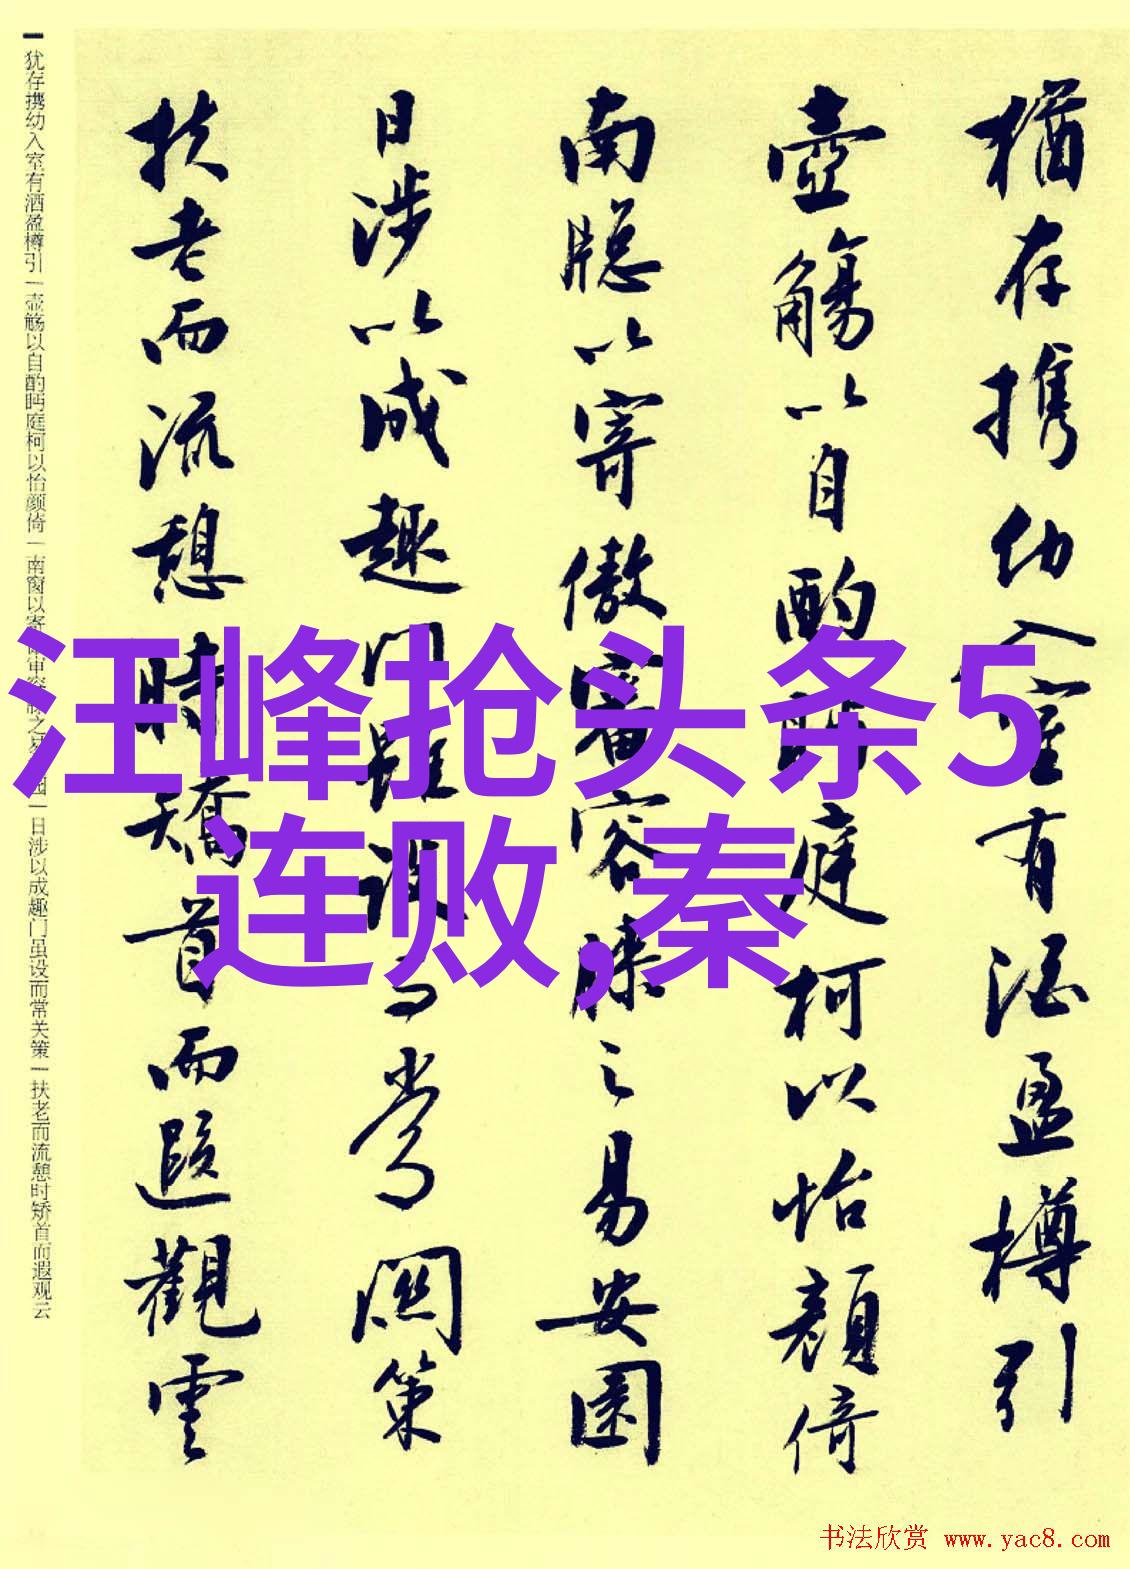 猶存携幼入室有酒盈樽引
壺觴以自酌眄庭柯以怡顔倚
南牕以寄傲審容膝之易安園
日涉以成趣門雖設而常関策
扶老而流憩時矯首而遐觀雲
犹存携幼入室有酒盈樽引｜壶觞以自酌眄庭柯以怡颜倚｜南窗以寄傲审容膝之易安园｜日涉以成趣门虽设而常关策｜扶老而流憩时矫首而遐观云
汪峰抢头条5
连败,秦
书法欣赏 www.yac8.com